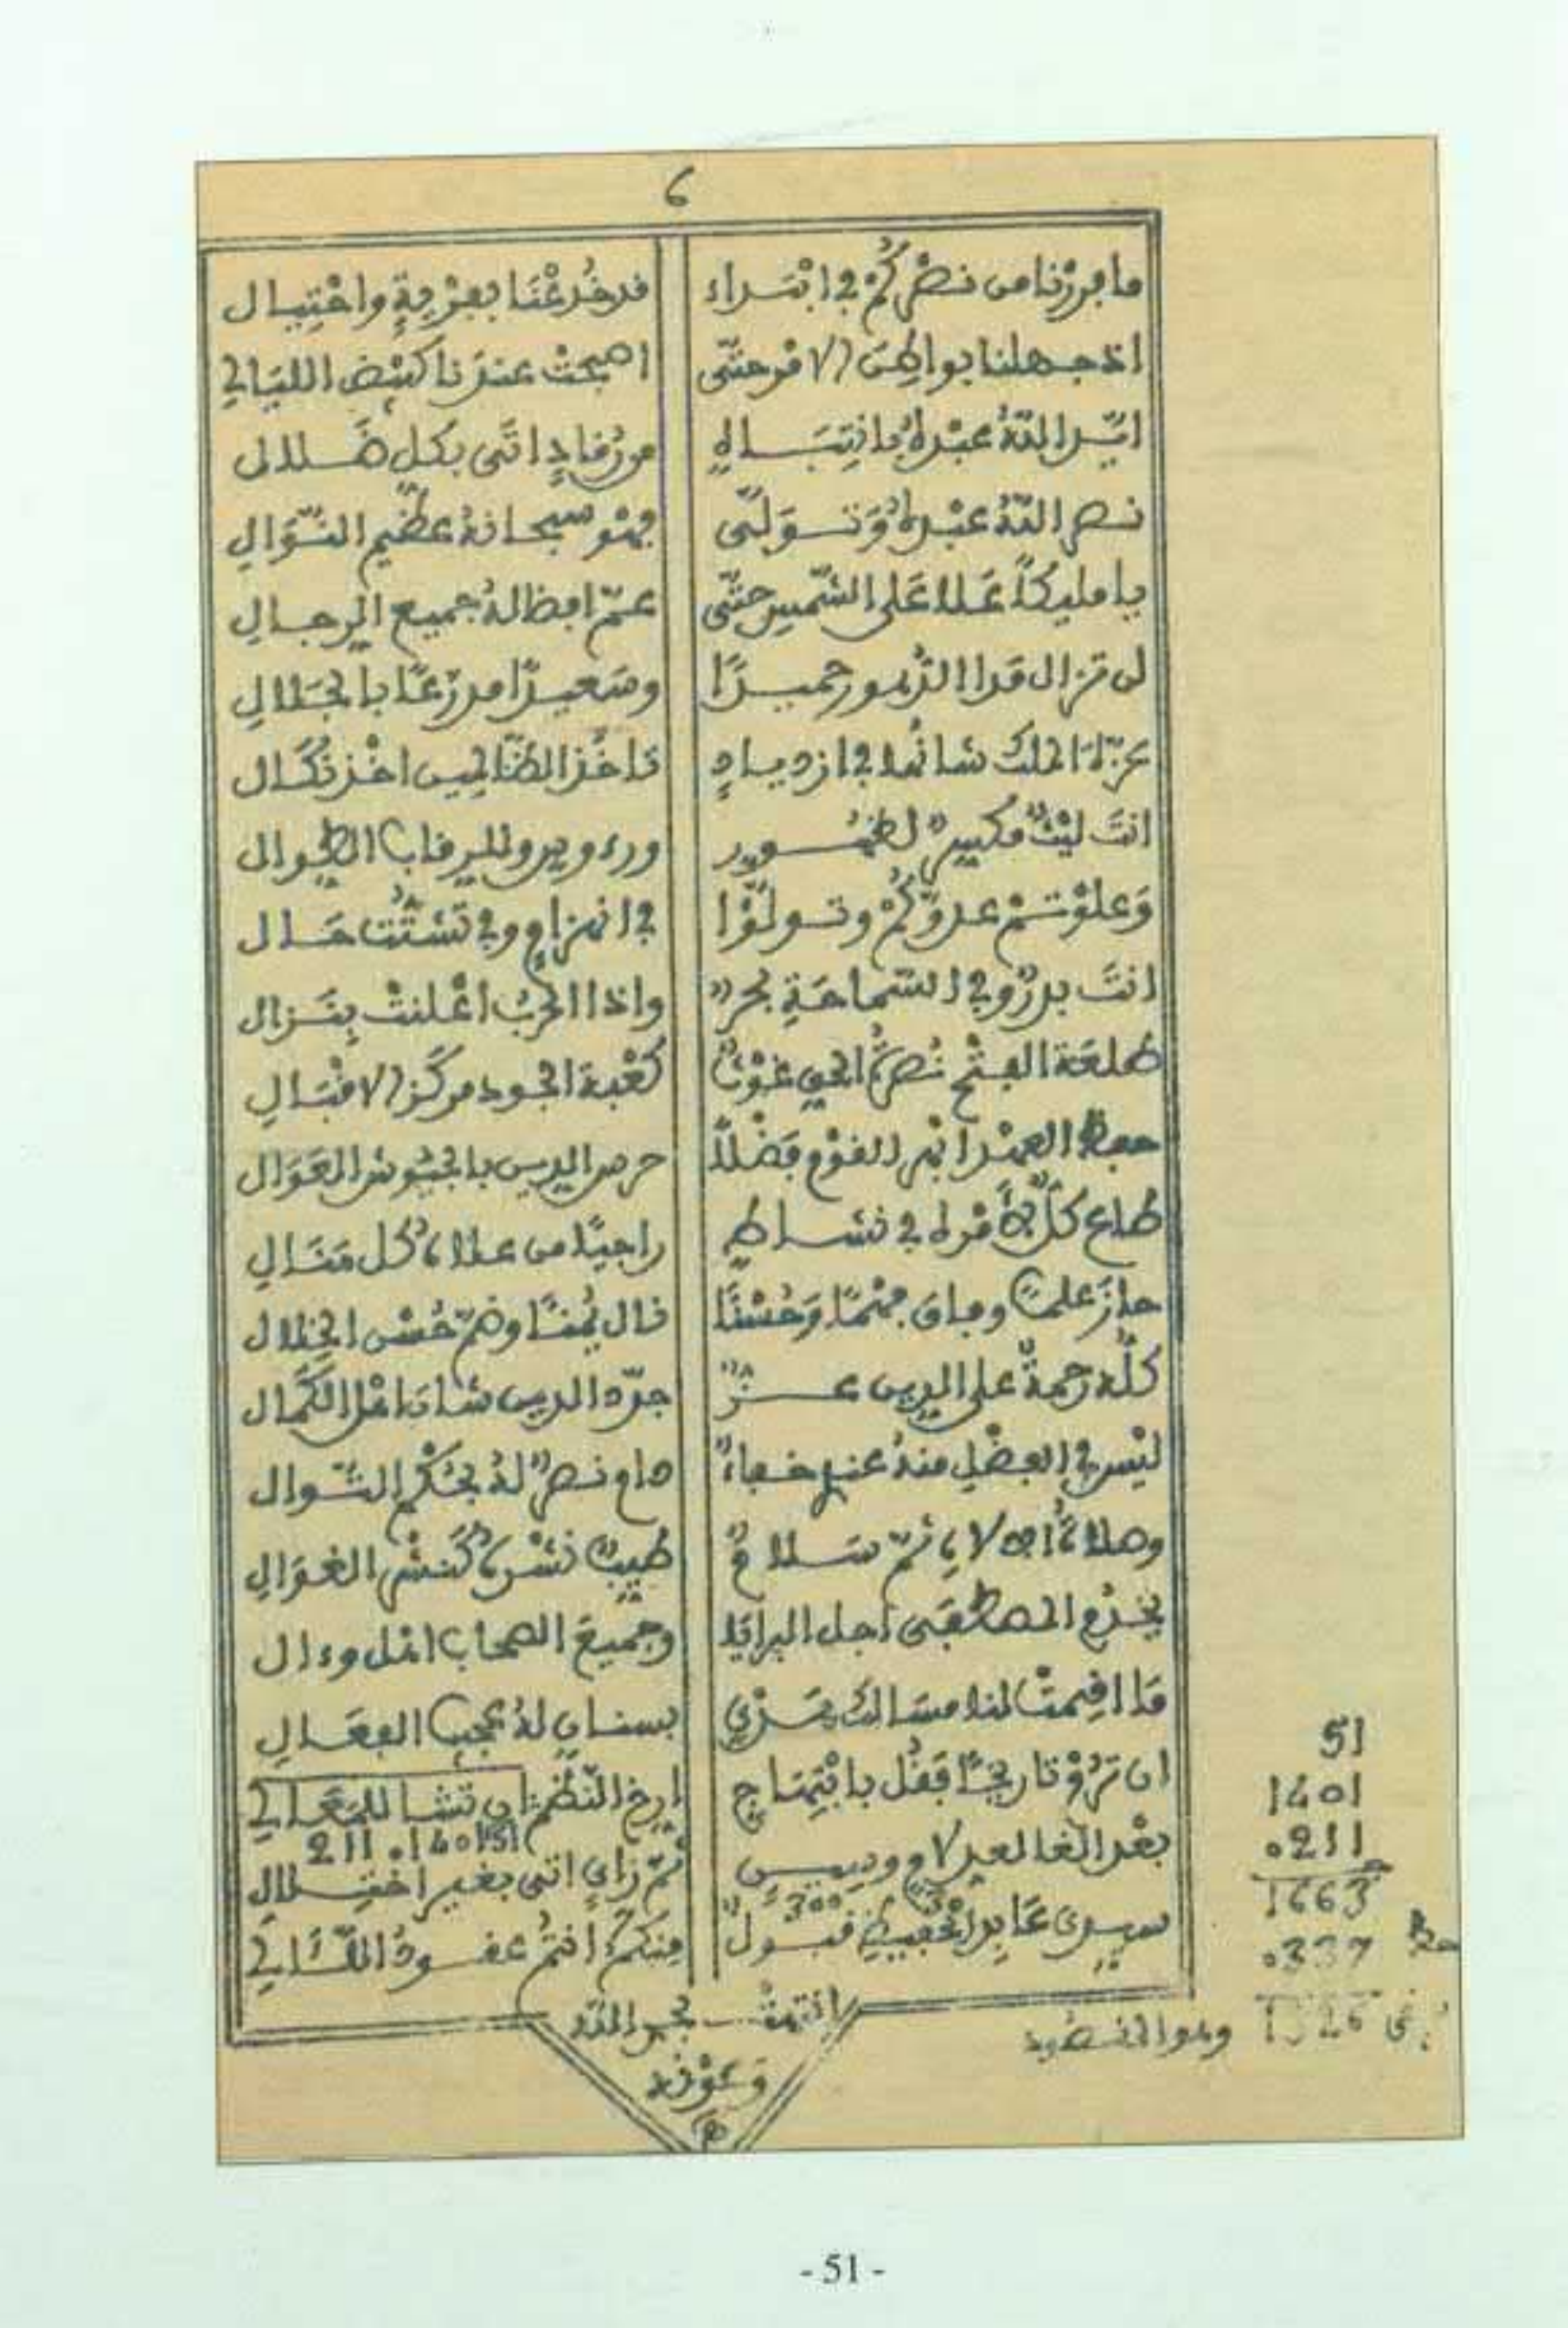 6
ما برزنا من نصركم في ابتداء قد خدعنا بعزبة واختيال
اذ جهلنا بواطن الامر حتى اصبحت عندنا كبعض الليالي
ايد الله عبده بانتباه من رقاد اتى بكل ضلال
نصر الله عبده وتولى فهو سبحانه عظيم النوال
يا مليكا علا على الشمس حتى عم افضاله جميع الرجال
لن تزال مدا الدهور حميدا وسعيدا مدرعا بالجلال
عزة الملك شانها في ازدياد تاخذ الظالمين اخذ نكال
انت ليث مكسر لظهور ورءوس وللرقاب الطوال
وعلوتم عدوكم وتولوا في انهزام وفي تشتت حال
انت بدر وفي السماحة بحر واذا الحرب اعلنت بنزال
طلعة الفتح نصرة الحي غوث كعبة الجود مركز الاقبال
حفظ العهد انهر القوم فضلا حرس الدين بالجيوش العوال
طاع كل لامره في نشاط راجيا من علاه كل منال
حاز علما وفاق فهما وحسنا قال يمنا وضم حسن الخلال
كله رحمة على الدين عز جدد الدين شاد اهل الكمال
ليس في الفضل منه عندي خفاء دام نصر له بحكم التوال
وصلاة الاله ثم سلام طيب نشره كنشر الغوال
يخدم المصطفى اجل البرايا وجميع الصحاب اهل وءال
ما اقيمت لنا مسالك تجزي بسنان له عجيب الفعال
ان ترد تاريخا فقل بابتهاج ارخ النظم ان تشا للمعالي
51 1401 211
بعد الغا لعيد لام وسين ثم زاي اتى بغير اختلال
300
سيدي عابد الحفيظ قبول منكم انتم عقود اللئالي
انتهت بحمد الله
وعونه
51
1401
0211
1663
0337 حط
1326 وهو المقصود
- 51 -